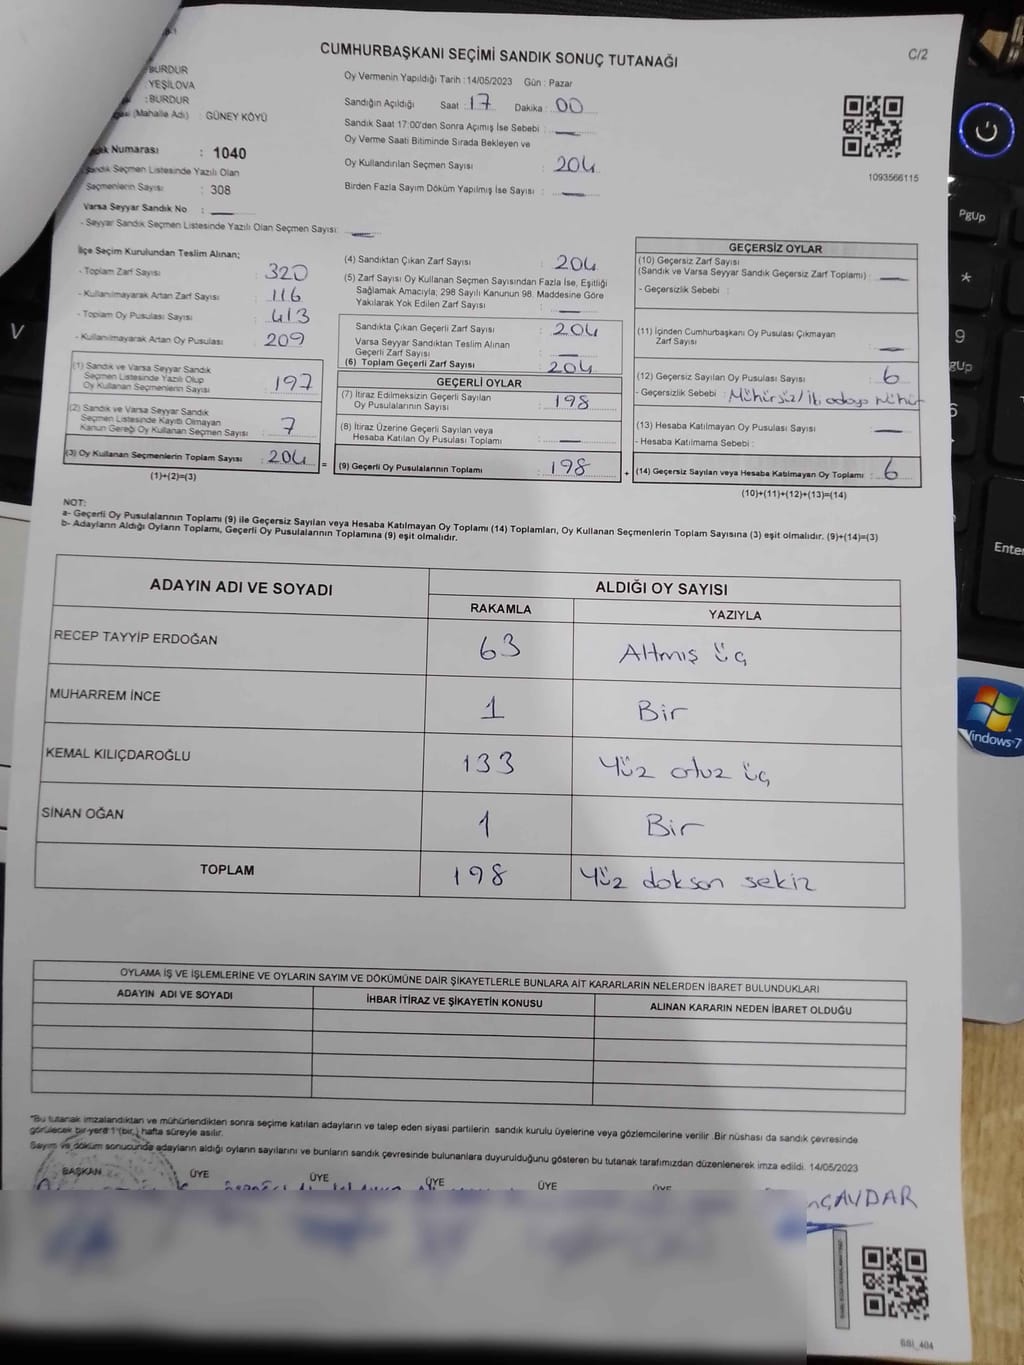 CUMHURBAŞKANI SEÇİMİ SANDIK SONUÇ TUTANAĞI
C/2
: BURDUR
: YEŞİLOVA
: BURDUR
(Mahalle Adı) : GÜNEY KÖYÜ
Numarası : 1040
Sandık Seçmen Listesinde Yazılı Olan
Seçmenlerin Sayısı : 308
Varsa Seyyar Sandık No :
- Seyyar Sandık Seçmen Listesinde Yazılı Olan Seçmen Sayısı:
Oy Vermenin Yapıldığı Tarih : 14/05/2023 Gün : Pazar
Sandığın Açıldığı Saat : 17 Dakika : 00
Sandık Saat 17:00'den Sonra Açımış İse Sebebi :
Oy Verme Saati Bitiminde Sırada Bekleyen ve
Oy Kullandırılan Seçmen Sayısı : 204
Birden Fazla Sayım Döküm Yapılmış İse Sayısı :
1093566115
İlçe Seçim Kurulundan Teslim Alınan;
- Toplam Zarf Sayısı : 320
- Kullanılmayarak Artan Zarf Sayısı : 116
- Toplam Oy Pusulası Sayısı : 413
- Kullanılmayarak Artan Oy Pusulası : 209
(1) Sandık ve Varsa Seyyar Sandık
Seçmen Listesinde Yazılı Olup
Oy Kullanan Seçmenlerin Sayısı : 197
(2) Sandık ve Varsa Seyyar Sandık
Seçmen Listesinde Kayıtlı Olmayan
Kanun Gereği Oy Kullanan Seçmen Sayısı : 7
(3) Oy Kullanan Seçmenlerin Toplam Sayısı : 204 =
(1)+(2)=(3)
(4) Sandıktan Çıkan Zarf Sayısı : 204
(5) Zarf Sayısı Oy Kullanan Seçmen Sayısından Fazla İse, Eşitliği
Sağlamak Amacıyla; 298 Sayılı Kanunun 98. Maddesine Göre
Yakılarak Yok Edilen Zarf Sayısı :
Sandıkta Çıkan Geçerli Zarf Sayısı : 204
Varsa Seyyar Sandıktan Teslim Alınan
Geçerli Zarf Sayısı :
(6) Toplam Geçerli Zarf Sayısı : 204
GEÇERLİ OYLAR
(7) İtiraz Edilmeksizin Geçerli Sayılan
Oy Pusulalarının Sayısı : 198
(8) İtiraz Üzerine Geçerli Sayılan veya
Hesaba Katılan Oy Pusulası Toplamı :
(9) Geçerli Oy Pusulalarının Toplamı : 198 +
GEÇERSİZ OYLAR
(10) Geçersiz Zarf Sayısı
(Sandık ve Varsa Seyyar Sandık Geçersiz Zarf Toplamı) :
- Geçersizlik Sebebi :
(11) İçinden Cumhurbaşkanı Oy Pusulası Çıkmayan
Zarf Sayısı :
(12) Geçersiz Sayılan Oy Pusulası Sayısı : 6
- Geçersizlik Sebebi : Mühürsüz / İki adaya mühür
(13) Hesaba Katılmayan Oy Pusulası Sayısı :
- Hesaba Katılmama Sebebi :
(14) Geçersiz Sayılan veya Hesaba Katılmayan Oy Toplamı : 6
(10)+(11)+(12)+(13)=(14)
NOT:
a- Geçerli Oy Pusulalarının Toplamı (9) ile Geçersiz Sayılan veya Hesaba Katılmayan Oy Toplamı (14) Toplamları, Oy Kullanan Seçmenlerin Toplam Sayısına (3) eşit olmalıdır. (9)+(14)=(3)
b- Adayların Aldığı Oyların Toplamı, Geçerli Oy Pusulalarının Toplamına (9) eşit olmalıdır.
ADAYIN ADI VE SOYADI ALDIĞI OY SAYISI
RAKAMLA YAZIYLA
RECEP TAYYİP ERDOĞAN 63 Altmış üç
MUHARREM İNCE 1 Bir
KEMAL KILIÇDAROĞLU 133 Yüz otuz üç
SİNAN OĞAN 1 Bir
TOPLAM 198 Yüz doksan sekiz
OYLAMA İŞ VE İŞLEMLERİNE VE OYLARIN SAYIM VE DÖKÜMÜNE DAİR ŞİKAYETLERLE BUNLARA AİT KARARLARIN NELERDEN İBARET BULUNDUKLARI
ADAYIN ADI VE SOYADI İHBAR İTİRAZ VE ŞİKAYETİN KONUSU ALINAN KARARIN NEDEN İBARET OLDUĞU
"Bu tutanak imzalandıktan ve mühürlendikten sonra seçime katılan adayların ve talep eden siyasi partilerin sandık kurulu üyelerine veya gözlemcilerine verilir. Bir nüshası da sandık çevresinde
görülecek bir yere 1 (bir) hafta süreyle asılır.
Sayım ve döküm sonucunda adayların aldığı oyların sayılarını ve bunların sandık çevresinde bulunanlara duyurulduğunu gösteren bu tutanak tarafımızdan düzenlenerek imza edildi. 14/05/2023
BAŞKAN ÜYE ÜYE ÜYE ÜYE ÜYE
ÇAVDAR
V
PgUp
*
9
Enter
Windows 7